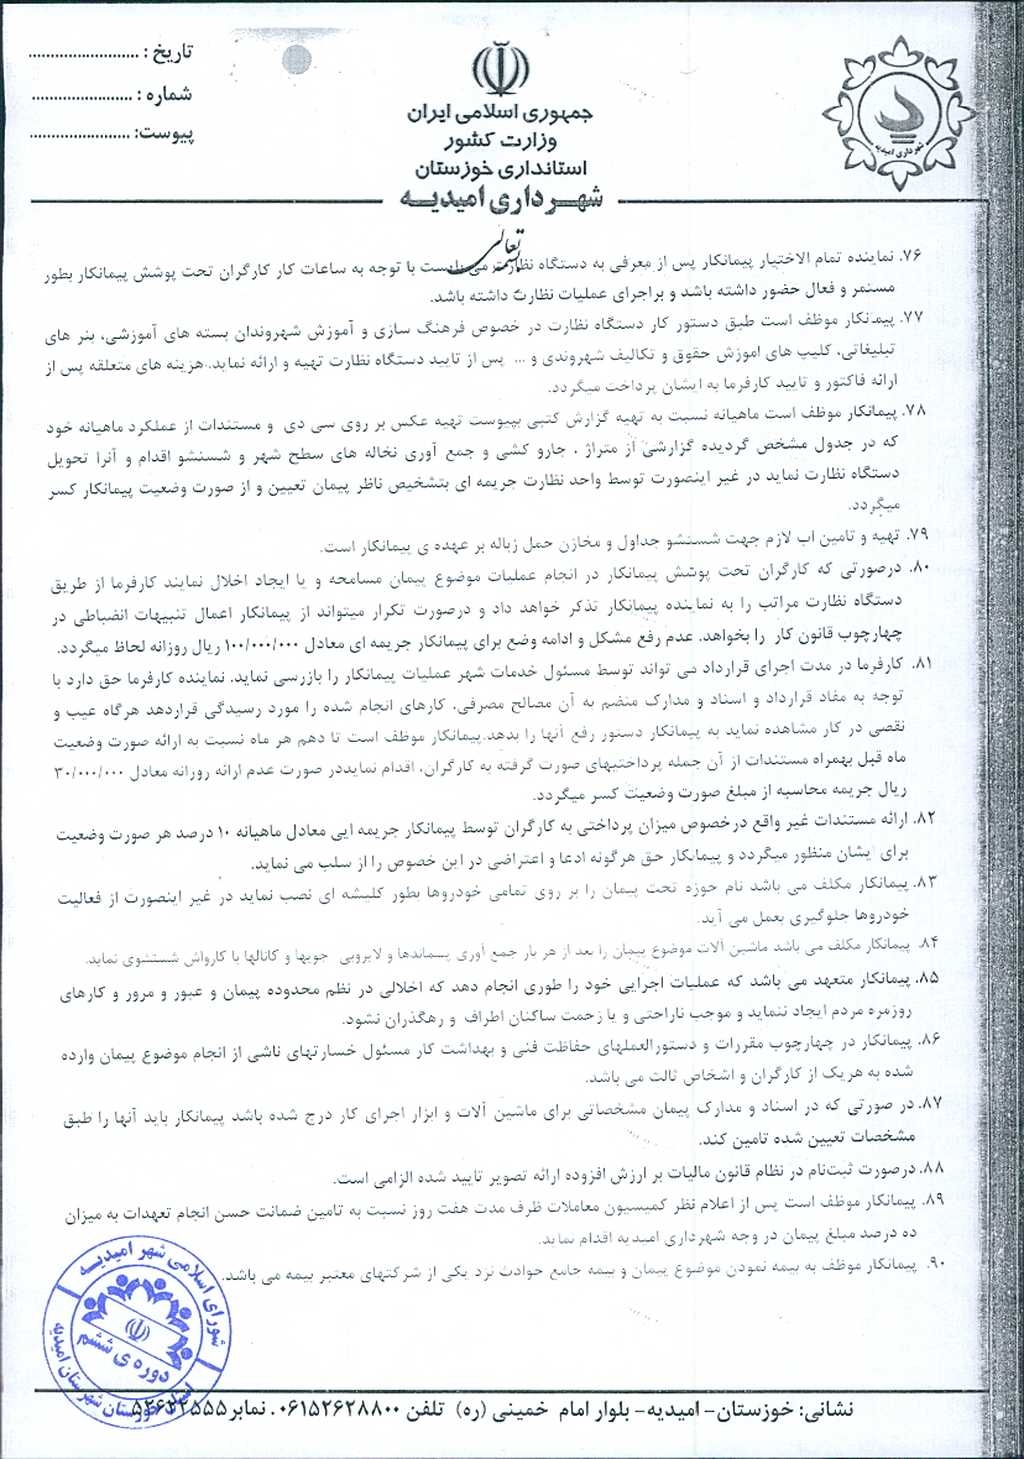 تاریخ : ........................
شماره : ......................
پیوست: ......................
جمهوری اسلامی ایران
وزارت کشور
استانداری خوزستان
شهرداری امیدیه
شهرداری امیدیه
بسمه تعالی
۷۶. نماینده تمام الاختیار پیمانکار پس از معرفی به دستگاه نظارت می بایست با توجه به ساعات کار کارگران تحت پوشش پیمانکار بطور
مستمر و فعال حضور داشته باشد و براجرای عملیات نظارت داشته باشد.
۷۷. پیمانکار موظف است طبق دستور کار دستگاه نظارت در خصوص فرهنگ سازی و آموزش شهروندان بسته های آموزشی، بنر های
تبلیغاتی، کلیپ های اموزش حقوق و تکالیف شهروندی و ... پس از تایید دستگاه نظارت تهیه و ارائه نماید. هزینه های متعلقه پس از
ارائه فاکتور و تایید کارفرما به ایشان پرداخت میگردد.
۷۸. پیمانکار موظف است ماهیانه نسبت به تهیه گزارش کتبی بپیوست تهیه عکس بر روی سی دی و مستندات از عملکرد ماهیانه خود
که در جدول مشخص گردیده گزارشی از متراژ ، جارو کشی و جمع آوری نخاله های سطح شهر و شستشو اقدام و آنرا تحویل
دستگاه نظارت نماید در غیر اینصورت توسط واحد نظارت جریمه ای بتشخیص ناظر پیمان تعیین و از صورت وضعیت پیمانکار کسر
میگردد.
۷۹. تهیه و تامین اب لازم جهت شستشو جداول و مخازن حمل زباله بر عهده ی پیمانکار است.
۸۰. درصورتی که کارگران تحت پوشش پیمانکار در انجام عملیات موضوع پیمان مسامحه و یا ایجاد اخلال نمایند کارفرما از طریق
دستگاه نظارت مراتب را به نماینده پیمانکار تذکر خواهد داد و درصورت تکرار میتواند از پیمانکار اعمال تنبیهات انضباطی در
چهارچوب قانون کار را بخواهد. عدم رفع مشکل و ادامه وضع برای پیمانکار جریمه ای معادل ۱۰۰/۰۰۰/۰۰۰ ریال روزانه لحاظ میگردد.
۸۱. کارفرما در مدت اجرای قرارداد می تواند توسط مسئول خدمات شهر عملیات پیمانکار را بازرسی نماید. نماینده کارفرما حق دارد با
توجه به مفاد قرارداد و اسناد و مدارک منضم به آن مصالح مصرفی، کارهای انجام شده را مورد رسیدگی قراردهد هرگاه عیب و
نقصی در کار مشاهده نماید به پیمانکار دستور رفع آنها را بدهد.پیمانکار موظف است تا دهم هر ماه نسبت به ارائه صورت وضعیت
ماه قبل بهمراه مستندات از آن جمله پرداختیهای صورت گرفته به کارگران، اقدام نمایددر صورت عدم ارائه روزانه معادل ۳۰/۰۰۰/۰۰۰
ریال جریمه محاسبه از مبلغ صورت وضعیت کسر میگردد.
۸۲. ارائه مستندات غیر واقع درخصوص میزان پرداختی به کارگران توسط پیمانکار جریمه ایی معادل ماهیانه ۱۰ درصد هر صورت وضعیت
برای ایشان منظور میگردد و پیمانکار حق هرگونه ادعا و اعتراضی در این خصوص را از سلب می نماید.
۸۳. پیمانکار مکلف می باشد نام حوزه تحت پیمان را بر روی تمامی خودروها بطور کلیشه ای نصب نماید در غیر اینصورت از فعالیت
خودروها جلوگیری بعمل می آید.
۸۴. پیمانکار مکلف می باشد ماشین آلات موضوع پیمان را بعد از هر بار جمع آوری پسماندها و لایروبی جویها و کانالها با کارواش شستشوی نماید.
۸۵. پیمانکار متعهد می باشد که عملیات اجرایی خود را طوری انجام دهد که اخلالی در نظم محدوده پیمان و عبور و مرور و کارهای
روزمره مردم ایجاد ننماید و موجب ناراحتی و یا زحمت ساکنان اطراف و رهگذران نشود.
۸۶. پیمانکار در چهارچوب مقررات و دستورالعملهای حفاظت فنی و بهداشت کار مسئول خسارتهای ناشی از انجام موضوع پیمان وارده
شده به هریک از کارگران و اشخاص ثالث می باشد.
۸۷. در صورتی که در اسناد و مدارک پیمان مشخصاتی برای ماشین آلات و ابزار اجرای کار درج شده باشد پیمانکار باید آنها را طبق
مشخصات تعیین شده تامین کند.
۸۸. درصورت ثبت‌نام در نظام قانون مالیات بر ارزش افزوده ارائه تصویر تایید شده الزامی است.
۸۹. پیمانکار موظف است پس از اعلام نظر کمیسیون معاملات ظرف مدت هفت روز نسبت به تامین ضمانت حسن انجام تعهدات به میزان
ده درصد مبلغ پیمان در وجه شهرداری امیدیه اقدام نماید.
۹۰. پیمانکار موظف به بیمه نمودن موضوع پیمان و بیمه جامع حوادث نزد یکی از شرکتهای معتبر بیمه می باشد.
شورای اسلامی شهر امیدیه
دوره ی ششم
استان خوزستان شهرستان امیدیه
نشانی: خوزستان- امیدیه- بلوار امام خمینی (ره) تلفن ۰۶۱۵۲۶۲۸۸۰۰ . نمابر ۵۲۶۲۲۵۵۵